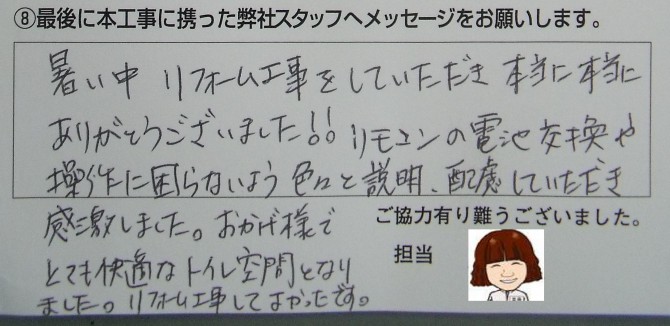 ⑧最後に本工事に携った弊社スタッフへメッセージをお願いします。
暑い中 リフォーム工事をしていただき 本当に本当に
ありがとうございました!! リモコンの電池交換や
操作に困らないよう 色々と説明、配慮していただき
感激しました。おかげ様で
とても快適なトイレ空間となり
ました。リフォーム工事してよかったです。
ご協力有り難うございました。
担当